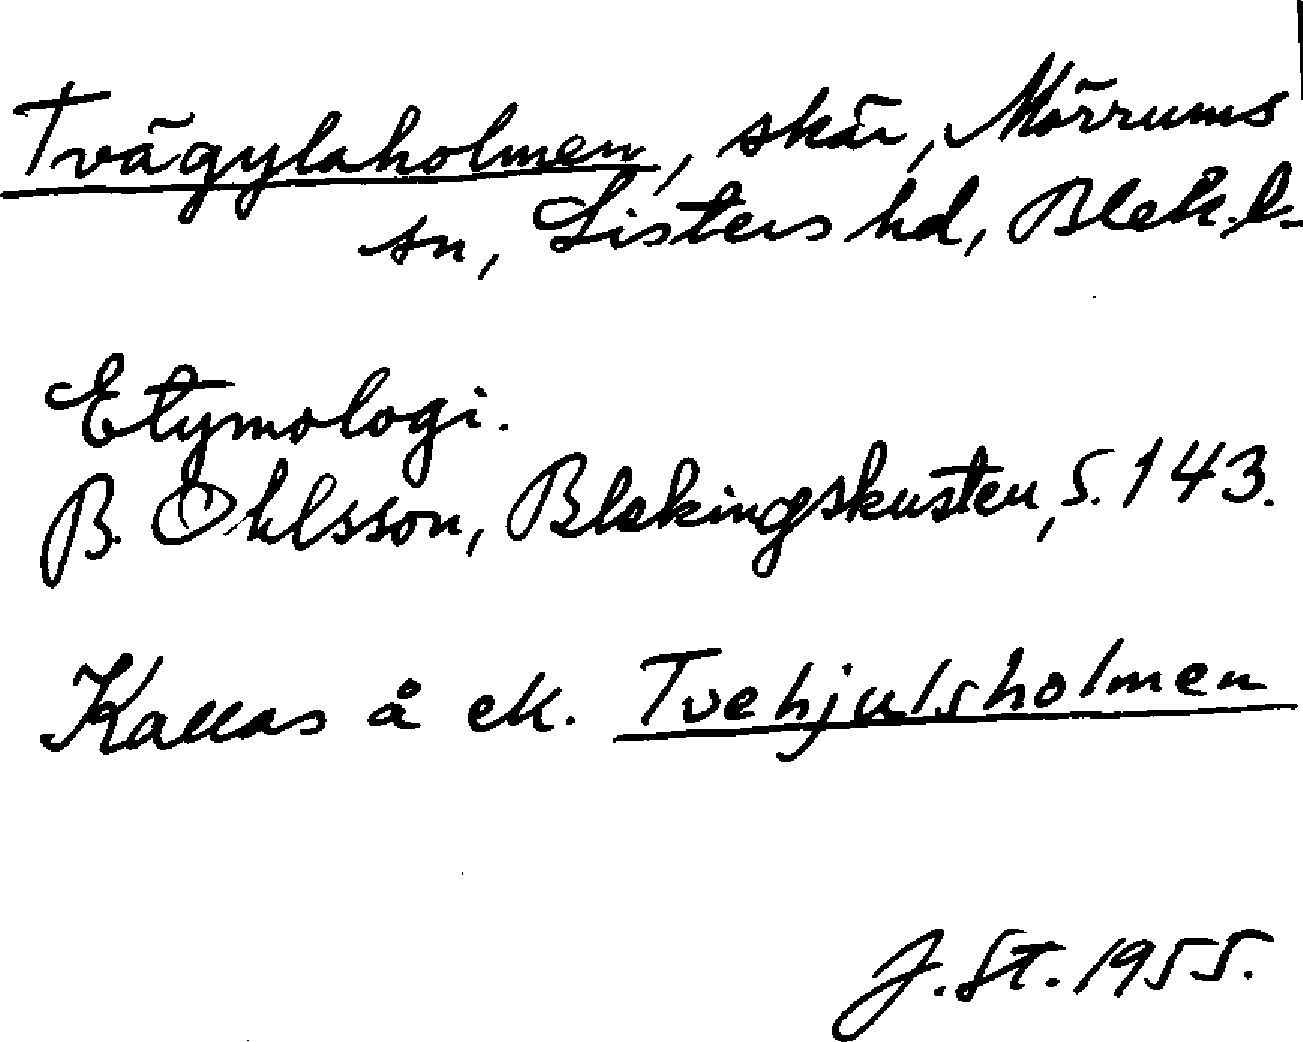 Tvägylaholmen, skär, Mörrums
sn, Listers hd, Blek. l.
Etymologi.
B. Ohlsson, Blekingskusten, s. 143.
Kallas å ek. Tvehjulsholmen
J. St. 1955.